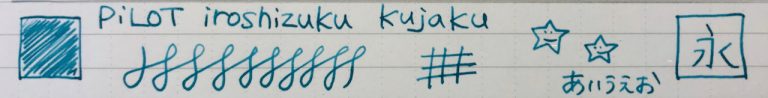 PiLOT iroshizuku kujaku
永
あいうえお